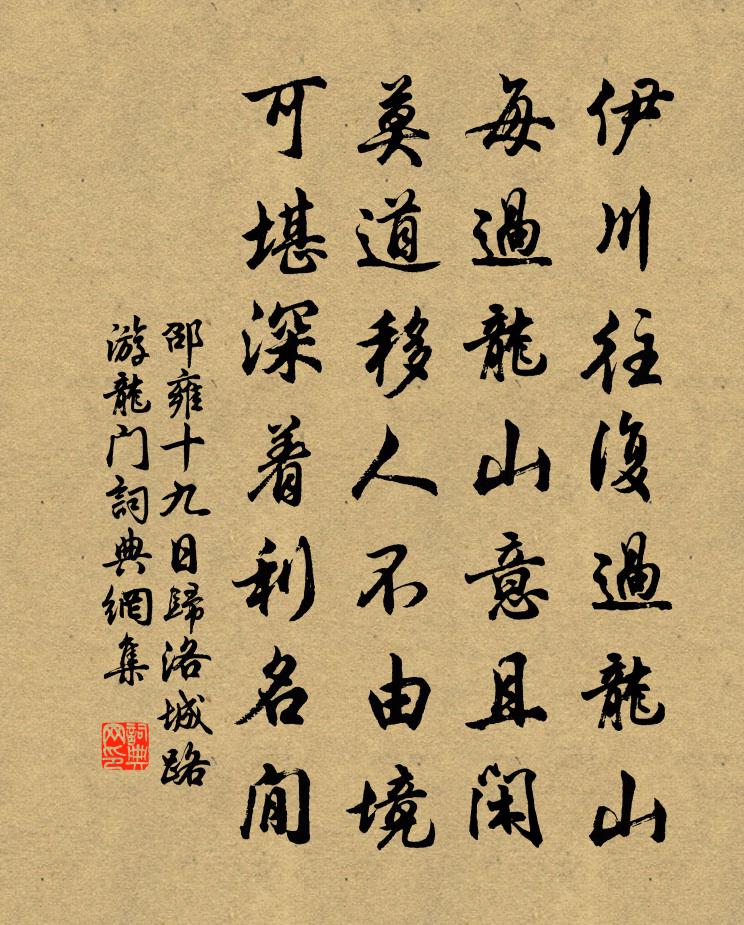 伊川往復過龍山
每過龍山意且閑
莫道移人不由境
可堪深着利名間
邵雍十九日歸洛城路
游龍门詞典網集
詞典网印